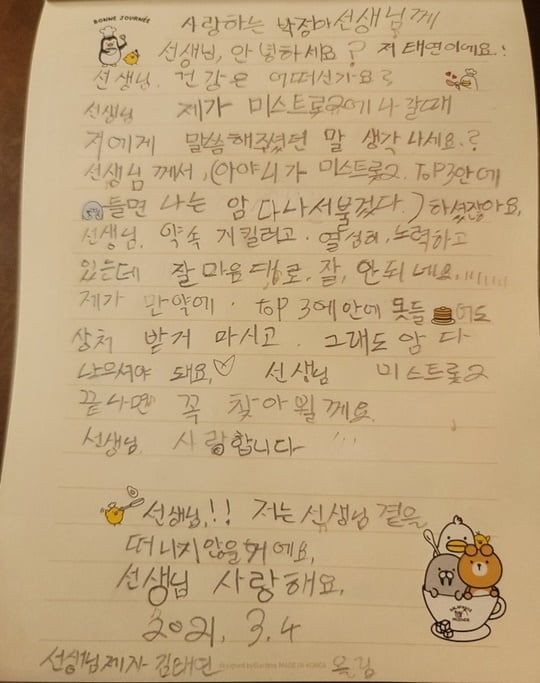 BONNE JOURNÉE
사랑하는 박정아선생님께
선생님, 안녕하세요? 저 태연이에요.!
선생님. 건강은 어떠신가요?
선생님 제가 미스트롯2에 나갈때
저에게 말씀해주셨던 말 생각나세요.?
선생님께서, (아야 니가 미스트롯2. TOP3안에
들면 나는 암 다 나서불겄다.) 하셨잖아요,
선생님. 약속 지킬려고. 열심히, 노력하고
있는데 잘 마음대로, 잘, 안되네요,
제가 만약에. top 3에 안에 못들어도
상처 받거 마시고. 그래도 암 다
나으셔야 돼요,♡ 선생님 미스트롯2
끝나면 꼭 찾아뵐께요.
선생님. 사랑합니다
선생님,!! 저는 선생님 곁을
떠나지 않을거에요,
선생님 사랑해요,
2021. 3.4
선생님제자 김태연 올림